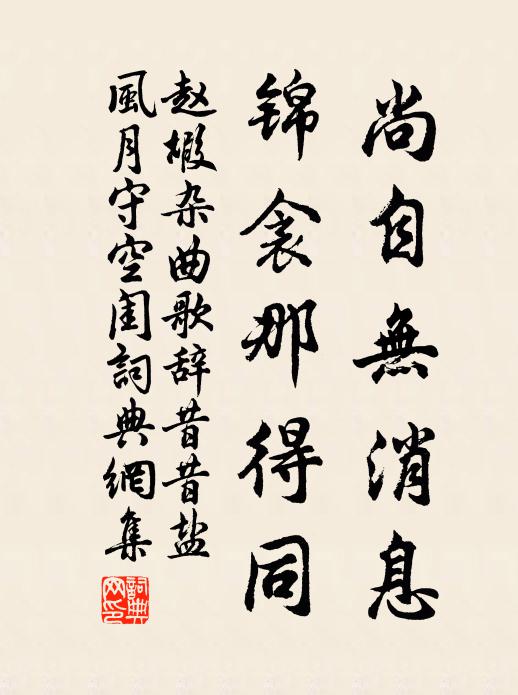 尚自無消息
锦衾那得同
赵嘏杂曲歌辞昔昔盐
風月守空闺詞典網集
詞典网印